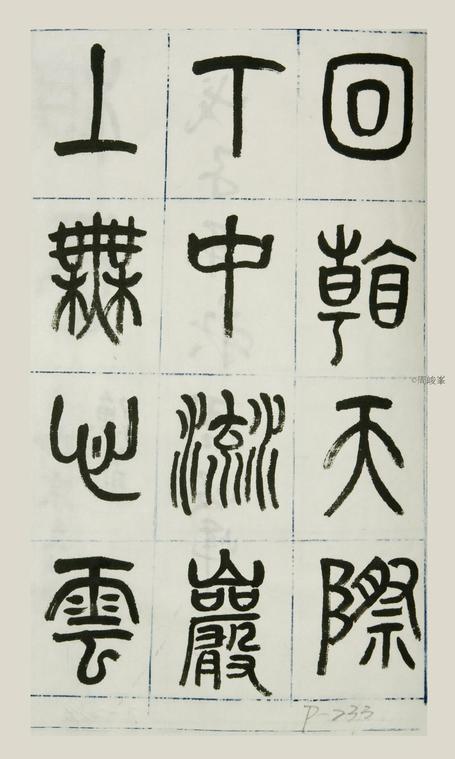 回看天際
下中流巖
上無心雲
P-233
©周峻峯